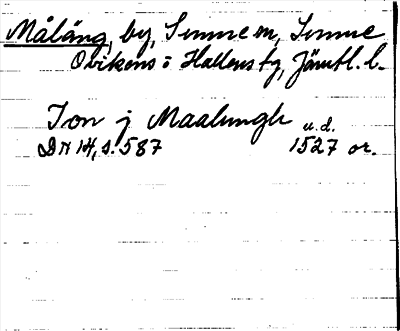 Målång, by, Sunne sn, Sunne
Ovikens o Hallens tg, Jämtl. l.
Jon j Maalungh u.d.
DN 14, s. 587 1527 or.